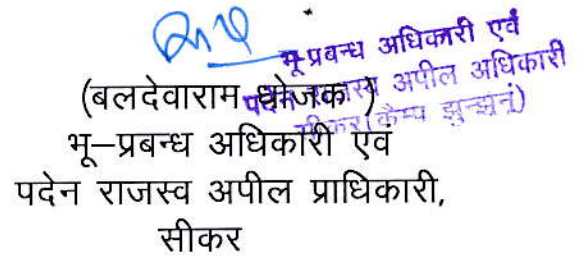 भू-प्रबन्ध अधिकारी एवं
पदेन राजस्व अपील अधिकारी
सीकर (कैम्प झुन्झुनूं)
(बलदेवाराम धोजक)
भू–प्रबन्ध अधिकारी एवं
पदेन राजस्व अपील प्राधिकारी,
सीकर